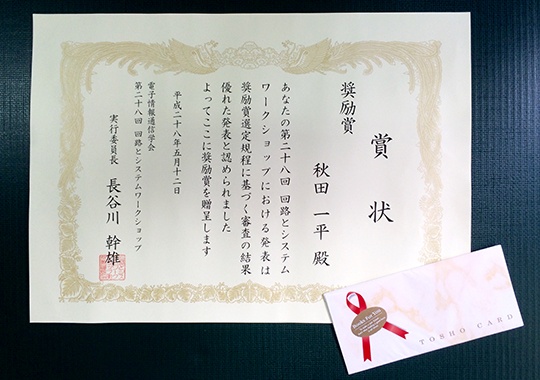 賞状
奨励賞
秋田 一平 殿
あなたの第二十八回 回路とシステム
ワークショップにおける発表は
奨励賞選定規程に基づく審査の結果
優れた発表と認められました
よってここに奨励賞を贈呈します
平成二十八年五月十二日
電子情報通信学会
第二十八回 回路とシステムワークショップ
実行委員長 長谷川 幹雄
TOSHO CARD